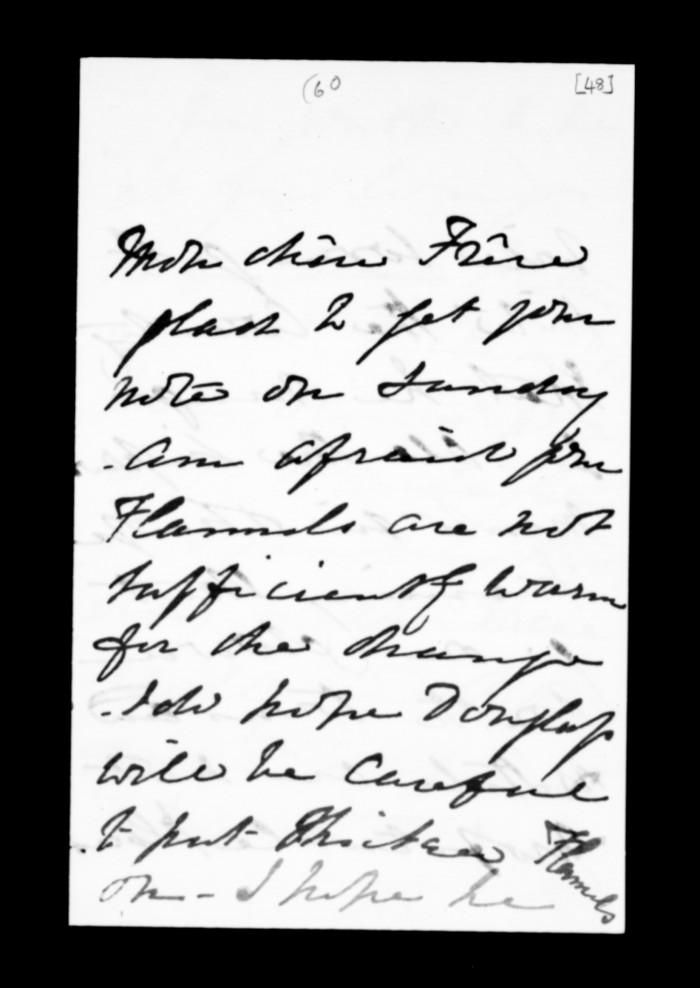 (60
[48]
Mon chère Frère
glad to get your
note on Sunday
- am afraid your
Flannels are not
sufficiently warm
for the change
- I do hope Douglass
will be Careful
to put thicker Flannels
on - I hope he